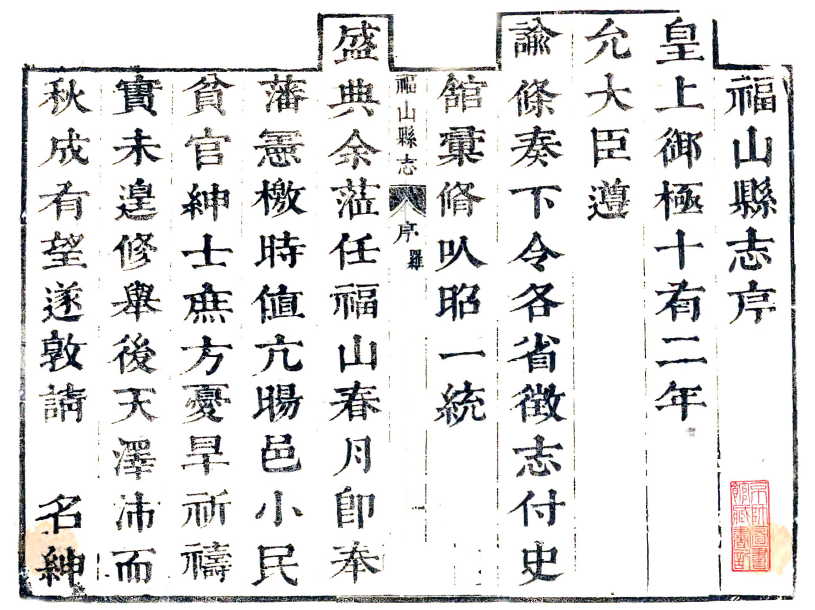 福山縣志序
皇上御極十有二年
允大臣遵
諭條奏下令各省徵志付史
館彙脩以昭一統
福山縣志 序 羅
盛典余蒞任福山春月即奉
藩憲檄時值亢暘邑小民
貧官紳士庶方憂旱祈禱
實未遑修舉後天澤沛而
秋成有望遂敦請 名紳